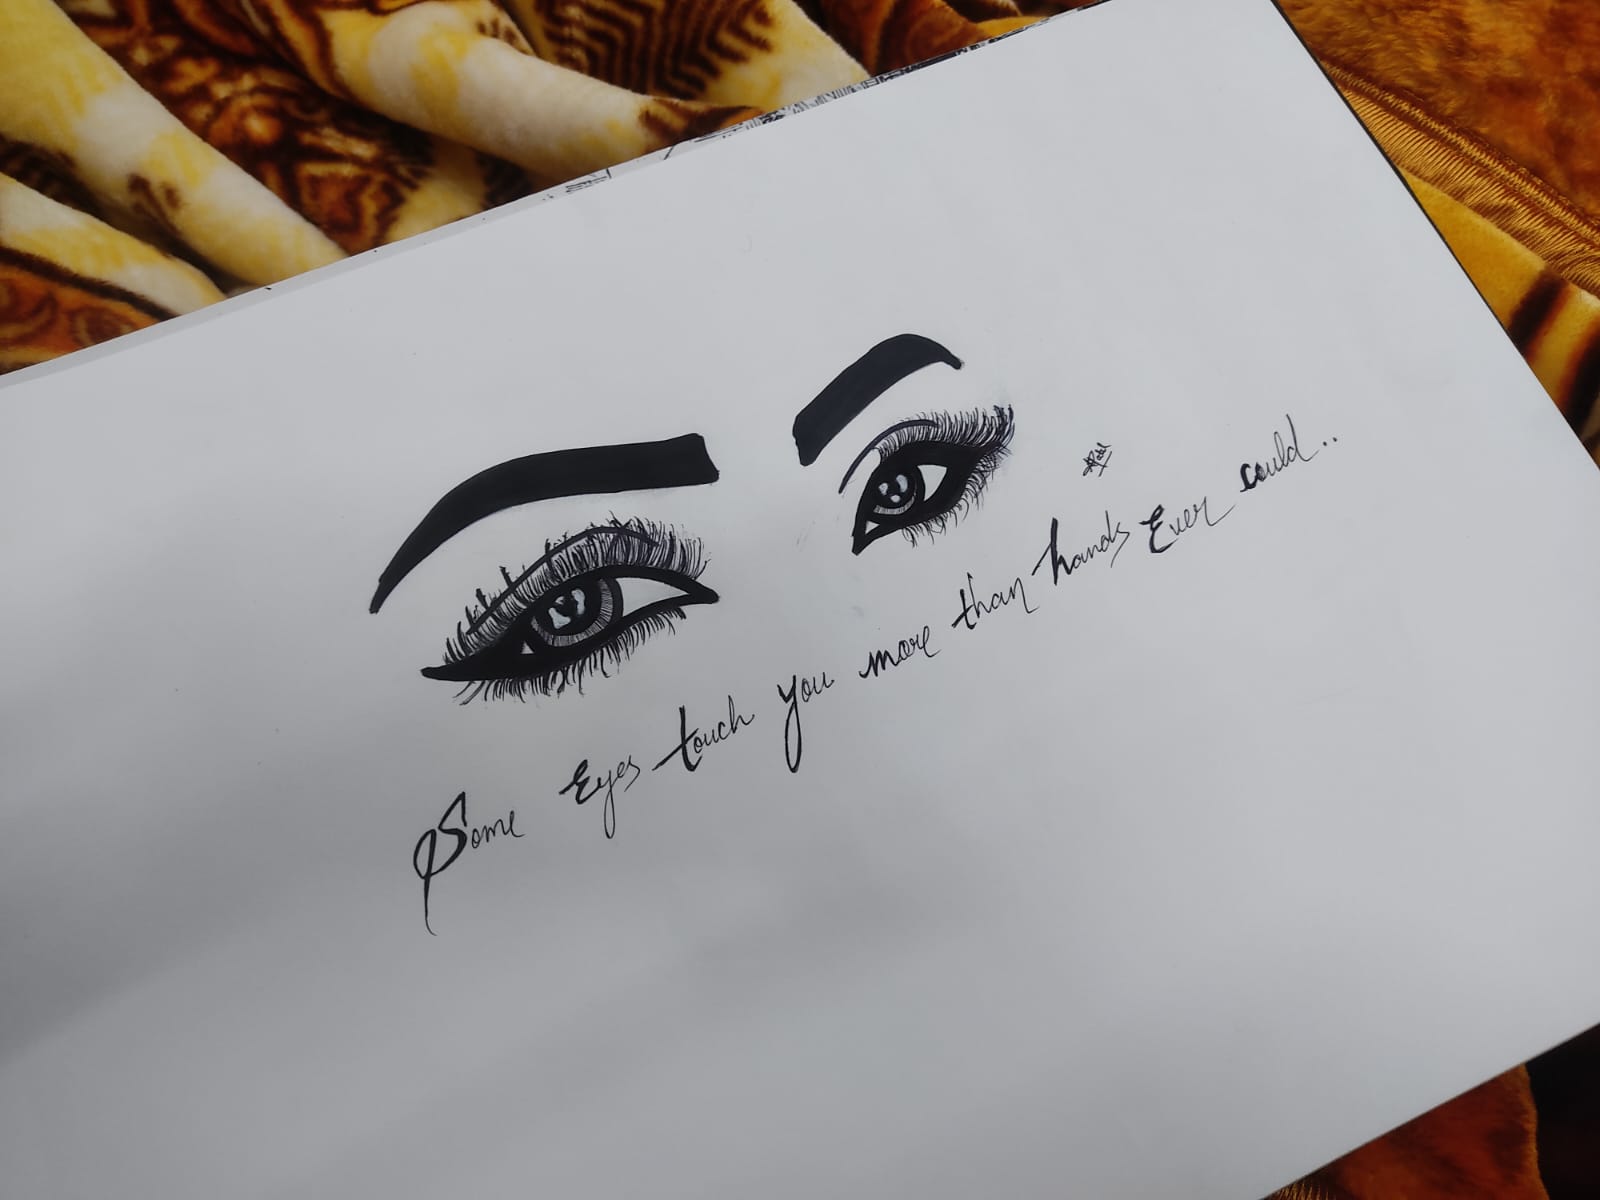 Some Eyes touch you more than hands Ever could..